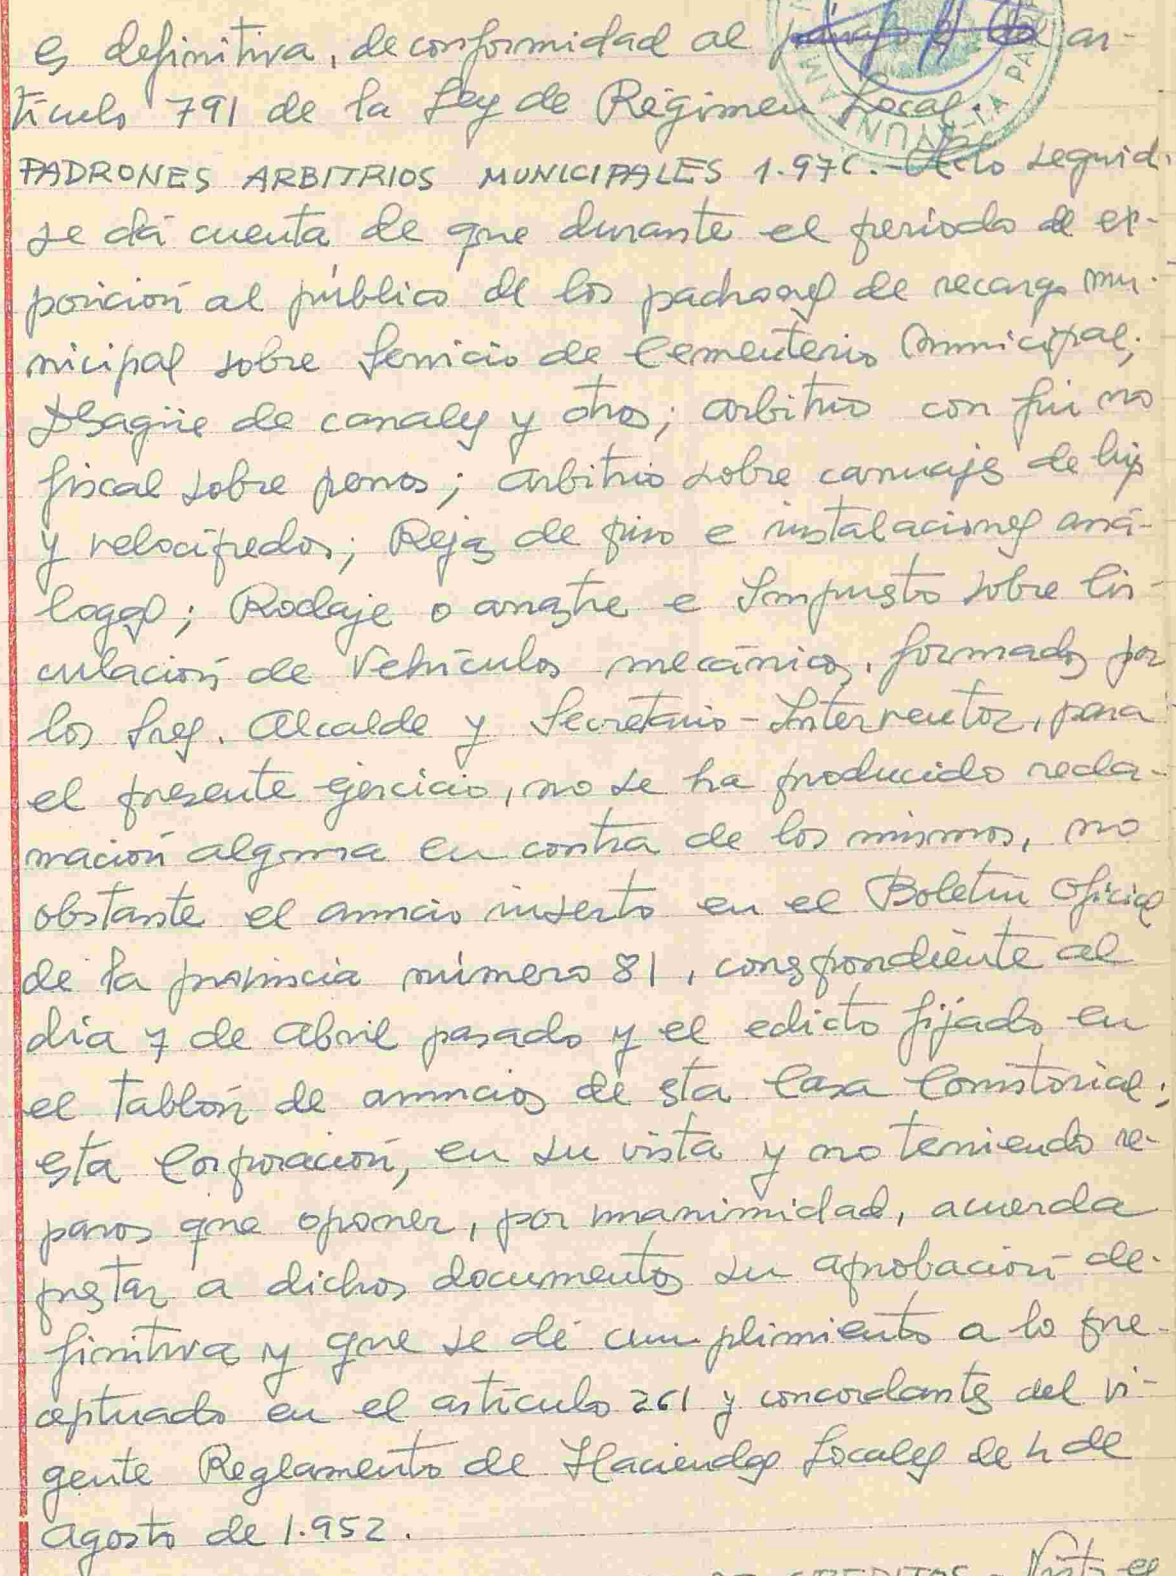 es definitiva, de conformidad al párrafo 2 del ar-
tículo 791 de la Ley de Régimen Local.
PADRONES ARBITRIOS MUNICIPALES 1.976.- Acto seguid.
se dá cuenta de que durante el periodo de ex-
posición al público de los padrones de recargo mu-
nicipal sobre Servicio de Cementerio Municipal;
Desagüe de canales y otros; arbitrio con fin no
fiscal sobre perros; arbitrio sobre carruajes de lujo
y velocípedos; Rejas de piso e instalaciones aná-
logas; Rodaje o arrastre e Impuesto sobre Cir-
culación de Vehículos mecánicos, formados por
los Sres. Alcalde y Secretario-Interventor, para
el presente ejercicio, no se ha producido recla-
mación alguna en contra de los mismos, no
obstante el anuncio inserto en el Boletín Oficial
de la provincia número 81, correspondiente al
día 7 de Abril pasado y el edicto fijado en
el tablón de anuncios de esta Casa Consistorial;
esta Corporación, en su vista y no teniendo re-
paros que oponer, por unanimidad, acuerda
prestar a dichos documentos su aprobación de-
finitiva y que se dé cumplimiento a lo pre-
ceptuado en el artículo 261 y concordantes del vi-
gente Reglamento de Haciendas Locales de 4 de
Agosto de 1.952.
CREDITOS.- Visto el